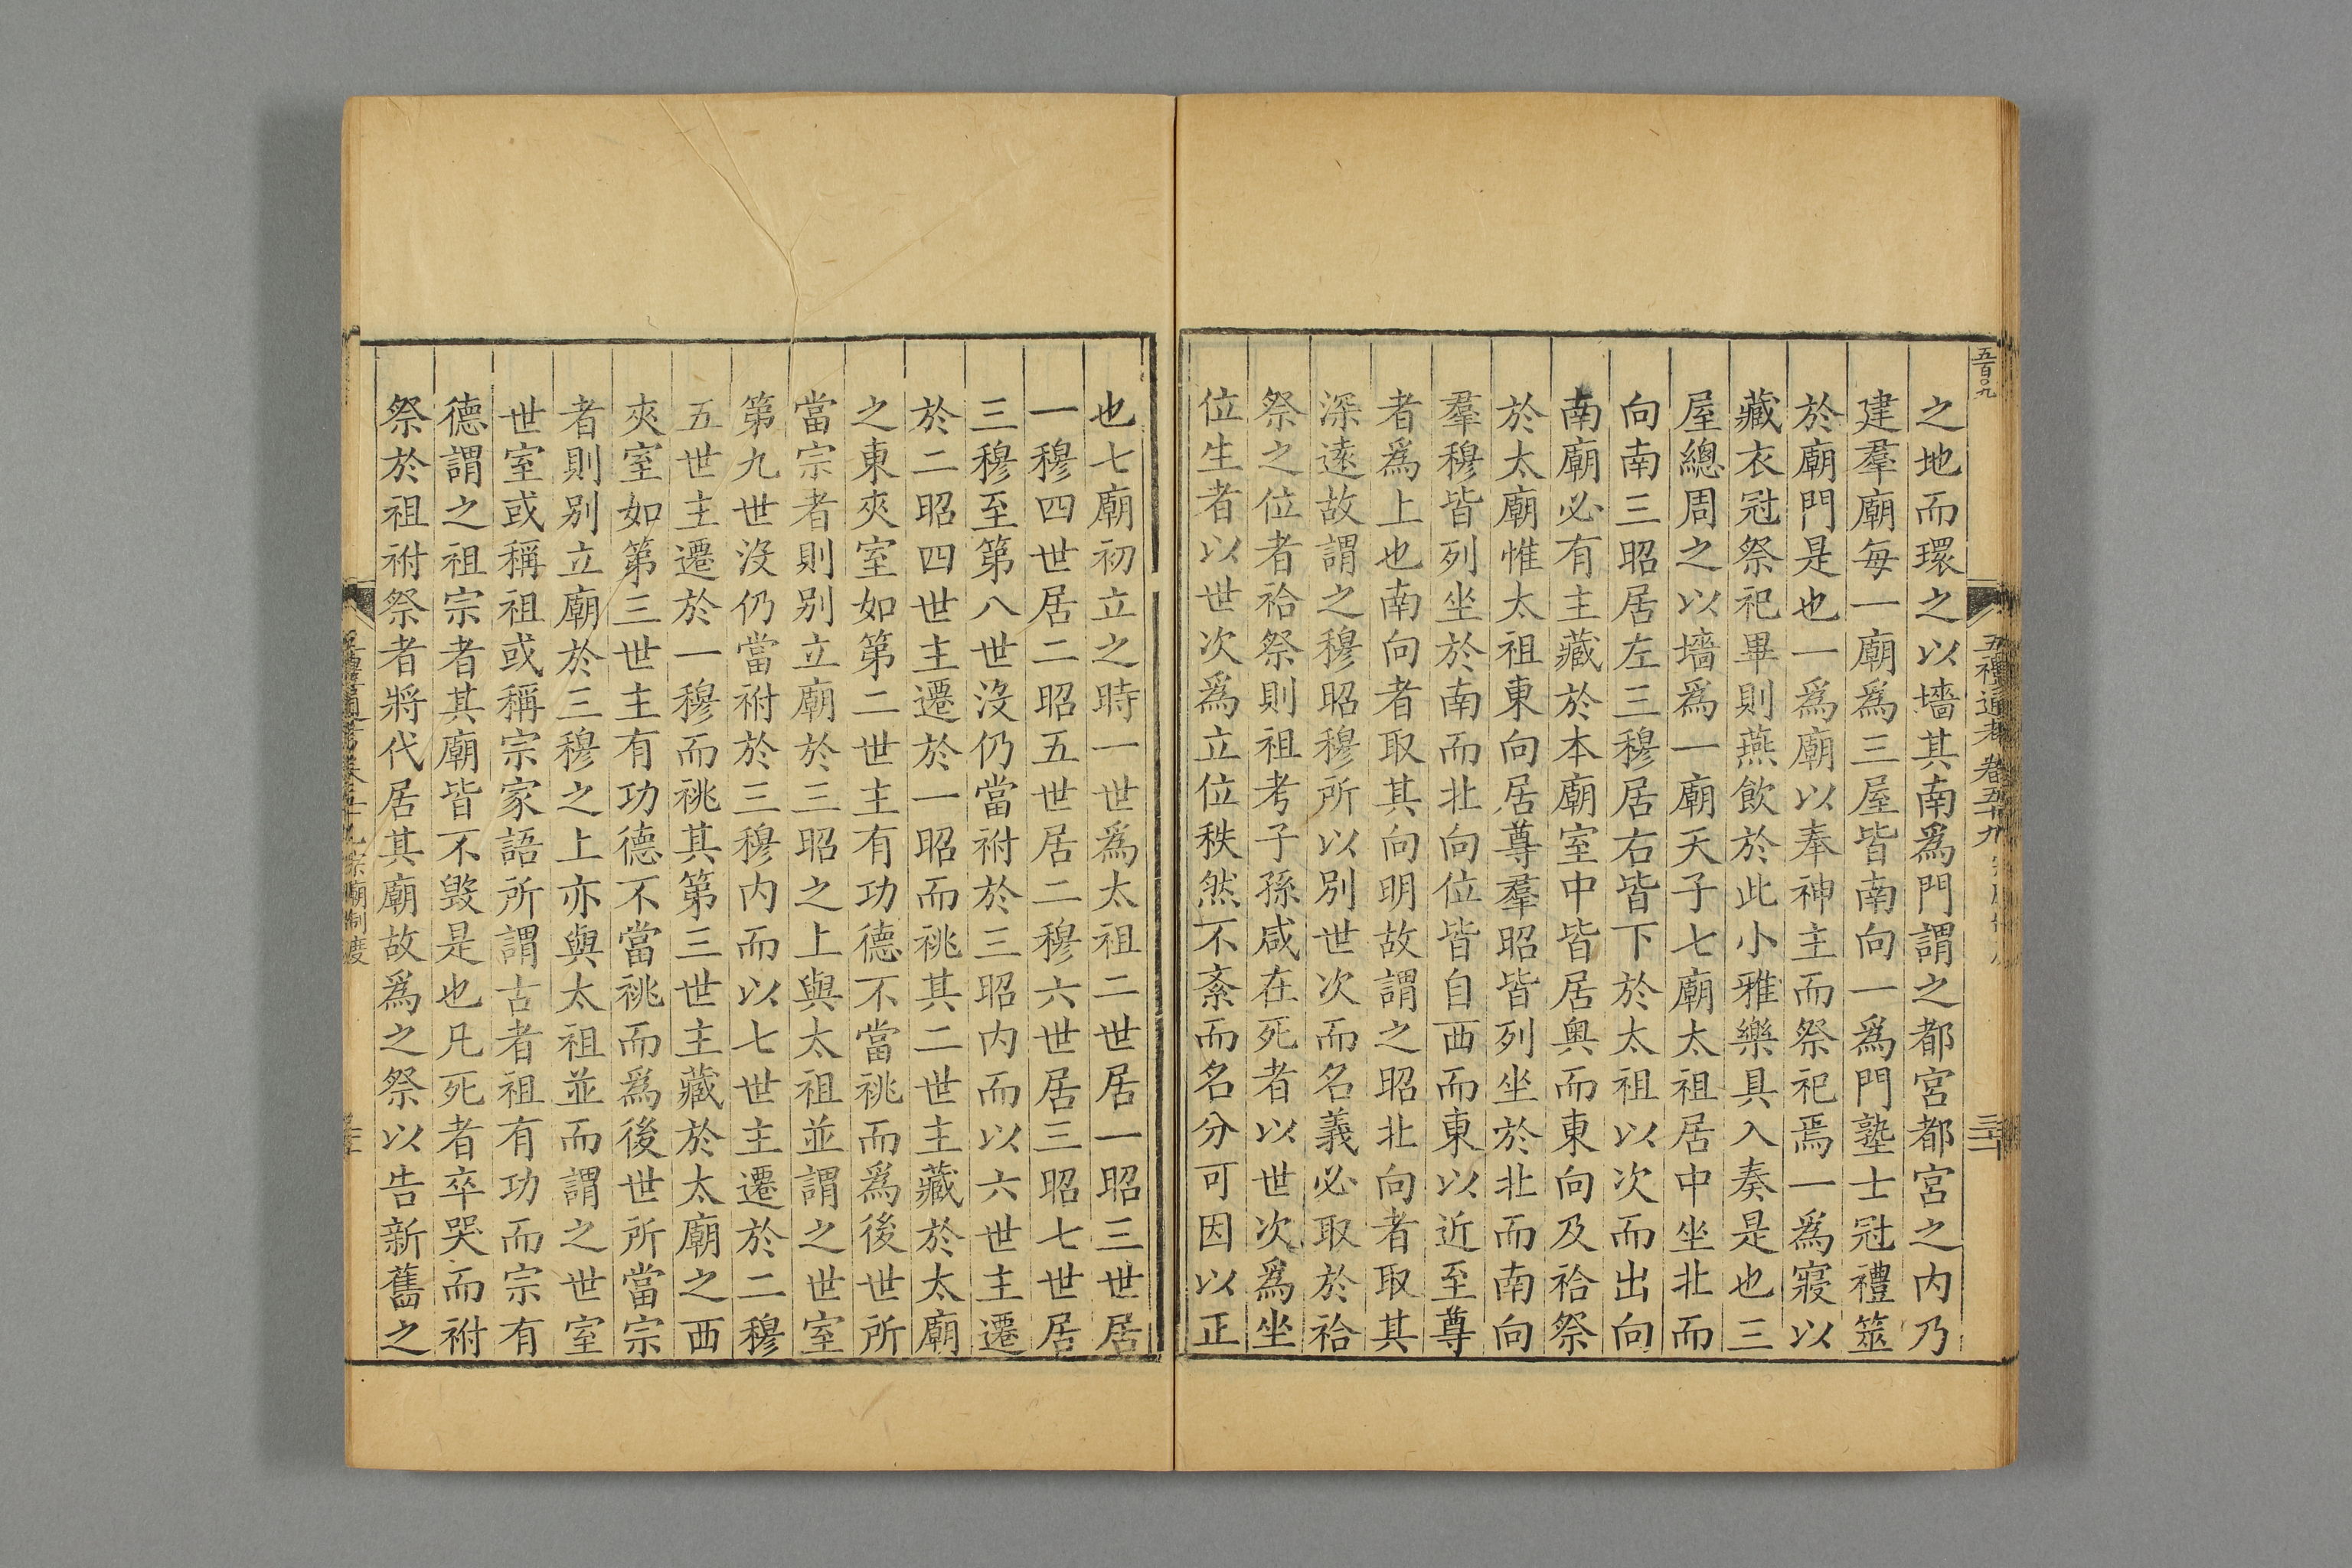 五百九
五禮通考 卷五十九
之地而環之以墻其南爲門謂之都宮都宮之内乃
建羣廟每一廟爲三屋皆南向一爲門塾士冠禮筮
於廟門是也一爲廟以奉神主而祭祀焉一爲寢以
藏衣冠祭祀畢則燕飲於此小雅樂具入奏是也三
屋總周之以墻爲一廟天子七廟太祖居中坐北而
向南三昭居左三穆居右皆下於太祖以次而出向
南廟必有主藏於本廟室中皆居奥而東向及祫祭
於太廟惟太祖東向居尊羣昭皆列坐於北而南向
羣穆皆列坐於南而北向位皆自西而東以近至尊
者爲上也南向者取其向明故謂之昭北向者取其
深遠故謂之穆昭穆所以別世次而名義必取於祫
祭之位者祫祭則祖考子孫咸在死者以世次爲坐
位生者以世次爲立位秩然不紊而名分可因以正
也七廟初立之時一世爲太祖二世居一昭三世居
一穆四世居二昭五世居二穆六世居三昭七世居
三穆至第八世没仍當祔於三昭内而以六世主遷
於二昭四世主遷於一昭而祧其二世主藏於太廟
之東夾室如第二世主有功德不當祧而爲後世所
當宗者則別立廟於三昭之上與太祖並謂之世室
第九世没仍當祔於三穆内而以七世主遷於二穆
五世主遷於一穆而祧其第三世主藏於太廟之西
夾室如第三世主有功德不當祧而爲後世所當宗
者則別立廟於三穆之上亦與太祖並而謂之世室
世室或稱祖或稱宗家語所謂古者祖有功而宗有
德謂之祖宗者其廟皆不毀是也凡死者卒哭而祔
祭於祖祔祭者將代居其廟故爲之祭以告新舊之
宗廟制度